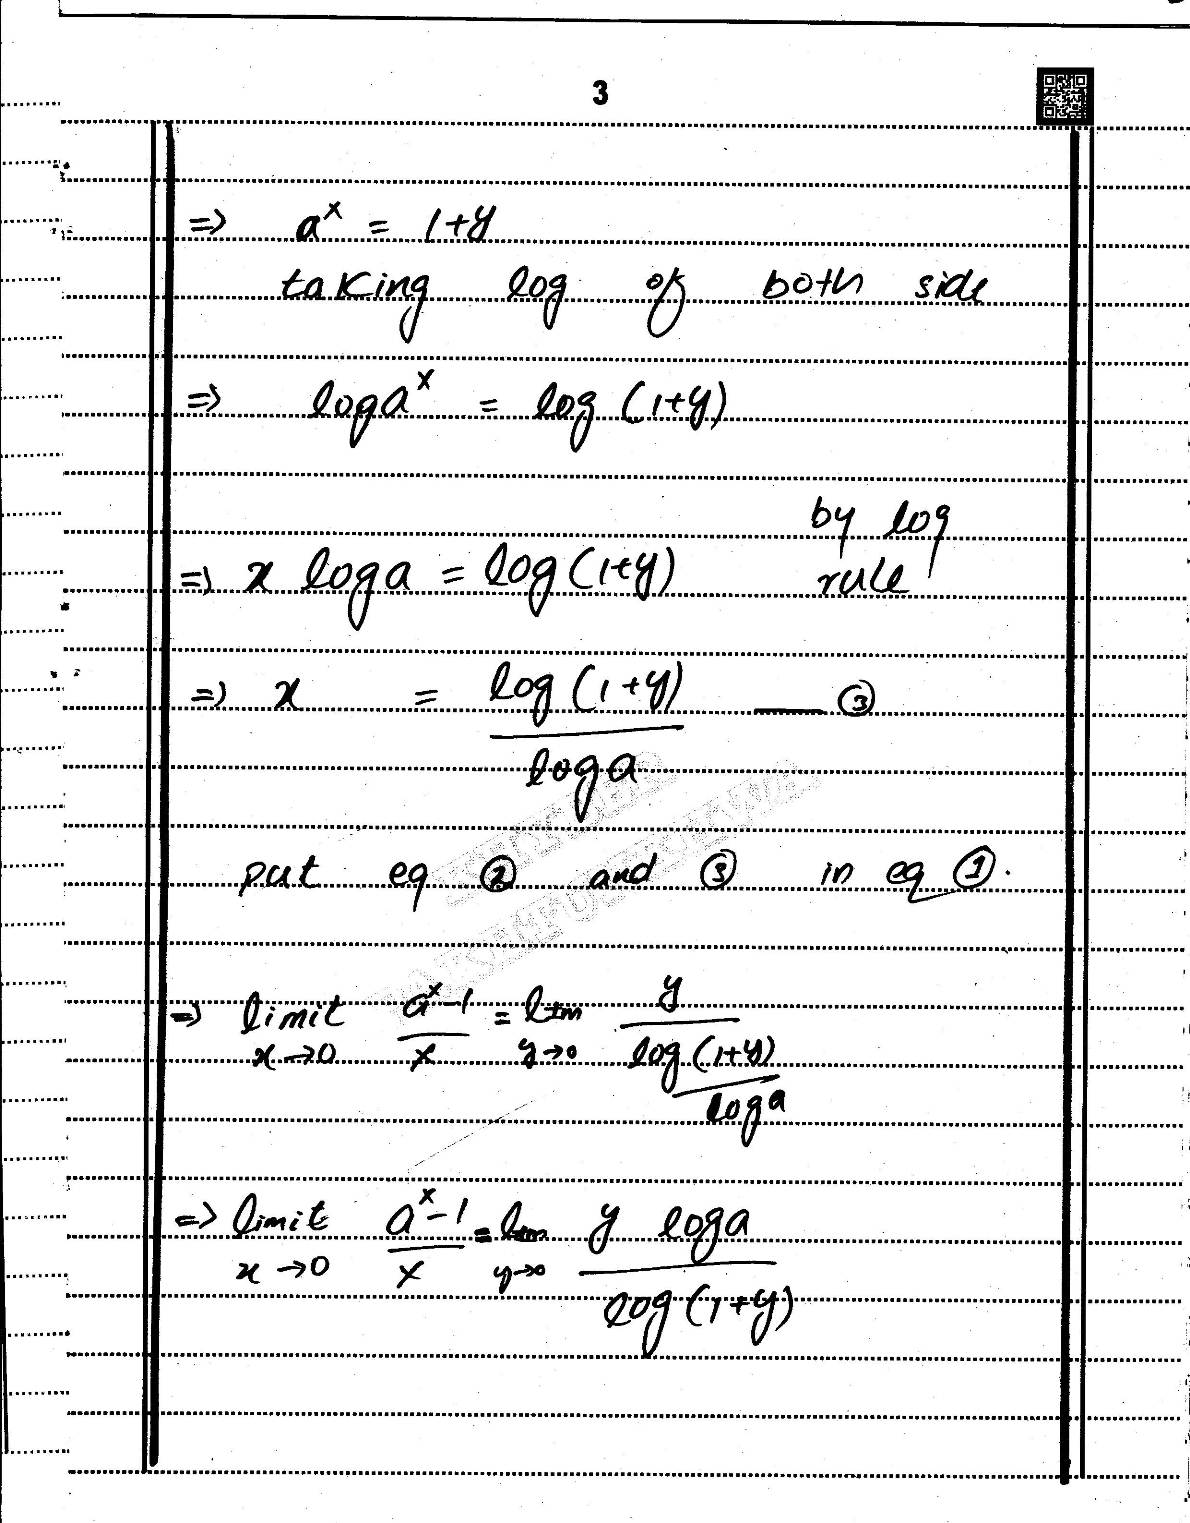 3
⇒ a^x = 1+y
taking log of both side
⇒ log a^x = log (1+y)
⇒ x log a = log (1+y) by log rule
⇒ x = log (1+y) / log a —— ③
put eq ② and ③ in eq ①.
⇒ limit x→0 a^x-1 / x = lim y→0 y / (log (1+y) / log a)
⇒ limit x→0 a^x-1 / x = lim y→0 y log a / log (1+y)